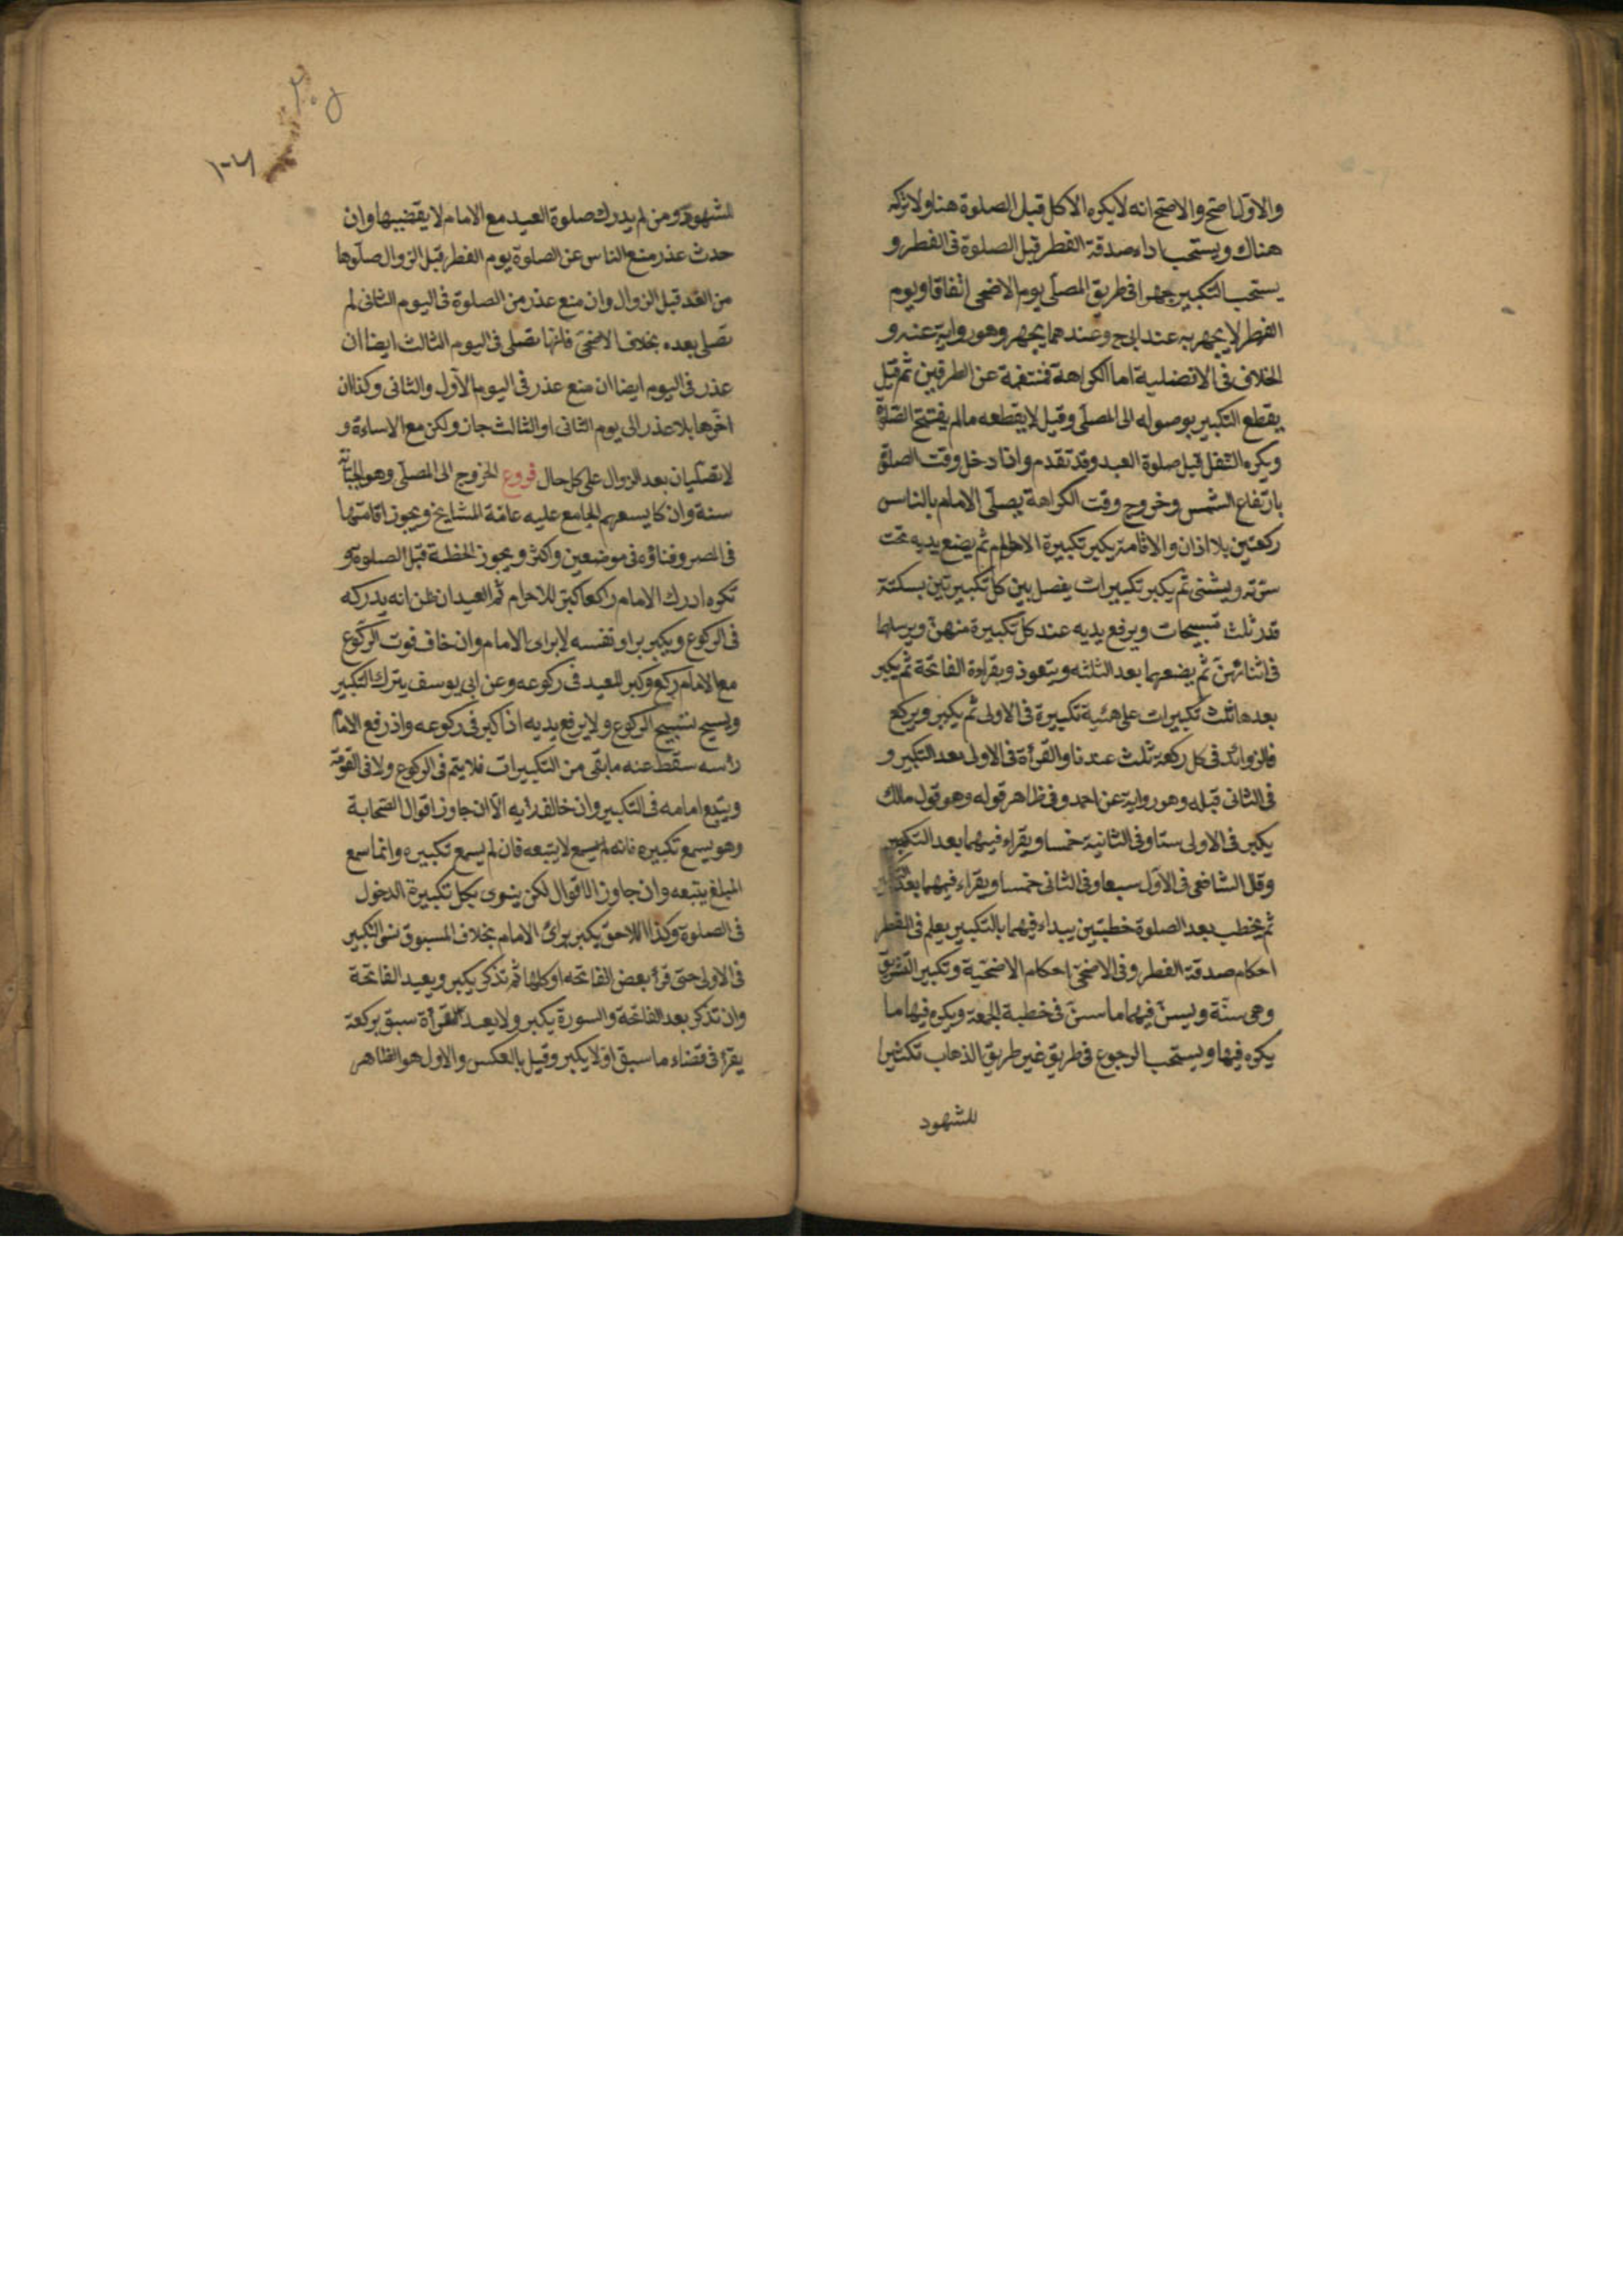 والاول اصح والاصح انه لا يكره الاكل قبل الصلوة هنا ولا تركه
هناك ويستحب اداء صدقة الفطر قبل الصلوة فى الفطر و
يستحب التكبير جهرا فى طريق المصلى يوم الاضحى اتفاقا ويوم
الفطر لا يجهر به عند ابى ح وعندهما يجهر وهو رواية عنه و
الخلاف فى الافضلية اما الكراهة فمنتفية عن الطرفين ثم قيل
يقطع التكبير بوصوله الى المصلى وقيل لا يقطعه مالم يفتتح الصلوة
ويكره التنفل قبل صلوة العيد وقد تقدم واذا دخل وقت الصلوة
بارتفاع الشمس وخروج وقت الكراهة يصلى الامام بالناس
ركعتين بلا اذان والا اقامة يكبر تكبيرة الاحرام ثم يضع يديه تحت
سرته ويثنى ثم يكبر تكبيرات يفصل بين كل تكبيرتين بسكتة
قدر ثلث تسبيحات ويرفع يديه عند كل تكبيرة منهن ويرسلها
فى اثنائهن ثم يضعهما بعد الثلثه ويتعوذ ويقراءة الفاتحة ثم يكبر
بعدها ثلث تكبيرات على هئية تكبيرة فى الاولى ثم يكبر ويركع
فالزوائد فى كل ركعة ثلث عندنا والقرأة فى الاولى بعد التكبير و
فى الثانى قبله وهو رواية عن احمد وفى ظاهر قوله وهو قول مالك
يكبر فى الاولى ستا وفى الثانية خمسا ويقراء فيهما بعد التكبير
وقل الشافعى فى الاول سبعا وفى الثانى خمسا ويقراء فيهما بعد التكبير
ثم يخطب بعد الصلوة خطبتين يبداء فيهما بالتكبير يعلم فى الفطر
احكام صدقة الفطر وفى الاضحى احكام الاضحية وتكبير التشريق
وهى سنة ويسن فيهما ما سن فى خطبة الجمعة ويكره فيها ما
يكره فيها ويستحب الرجوع فى طريق غير طريق الذهاب تكثيرا
للشهود
للشهود ومن لم يدرك صلوة العيد مع الامام لا يقضيها وان
حدث عذر منع الناس عن الصلوة يوم الفطر قبل الزوال صلوها
من الغد قبل الزوال وان منع عذر من الصلوة فى اليوم الثانى لم
تصلى بعده بخلاف الاضحى فانها تصلى فى اليوم الثالث ايضا ان
عذر فى اليوم ايضا ان منع عذر فى اليوم الاول والثانى وكذا ان
اخرها بلا عذر الى يوم الثانى او الثالث جاز ولكن مع الاساءة و
لا تصليان بعد الزوال على كل حال فروع الخروج الى المصلى وهو الجبانة
سنة وان كا يسعهم الجامع عليه عامة المشايخ ويجوز اقامتها
فى المصر وفناؤه فى موضعين واكثر ويجوز الخطبة قبل الصلوة و
تكره ادرك الامام راكعا كبر للاحرام ثم العيد ان ظن انه يدركه
فى الركوع ويكبر براى نفسه لا براى الامام وان خاف فوت الركوع
مع الامام ركع وكبر للعيد فى ركوعه وعن ابى يوسف يترك التكبير
ويسبح تسبيح الركوع ولا يرفع يديه اذا كبر فى ركوعه واذ رفع الامام
راسه سقط عنه مابقى من التكبيرات فلا يتم فى الركوع ولا فى القومة
ويتبع امامه فى التكبير وان خالف رأيه الا ان جاوز اقوال الصحابة
وهو يسمع تكبيره فانه لم يسمع لا يتبعه فان لم يسمع تكبيره وانما سمع
المبلغ يتبعه وان جاوز الاقوال لكن ينوى بكل تكبيرة الدخول
فى الصلوة وكذا اللاحق يكبر براى الامام بخلاف المسبوق نسى التكبير
فى الاولى حتى قرأ بعض الفاتحه او كلها ثم تذكر يكبر ويعيد الفاتحة
وان تذكر بعد الفاتحة والسورة يكبر ولا يعيد القرأة سبق بركعة
يقرأ فى قضاء ما سبق اولا يكبر وقيل بالعكس والاول هو الظاهر